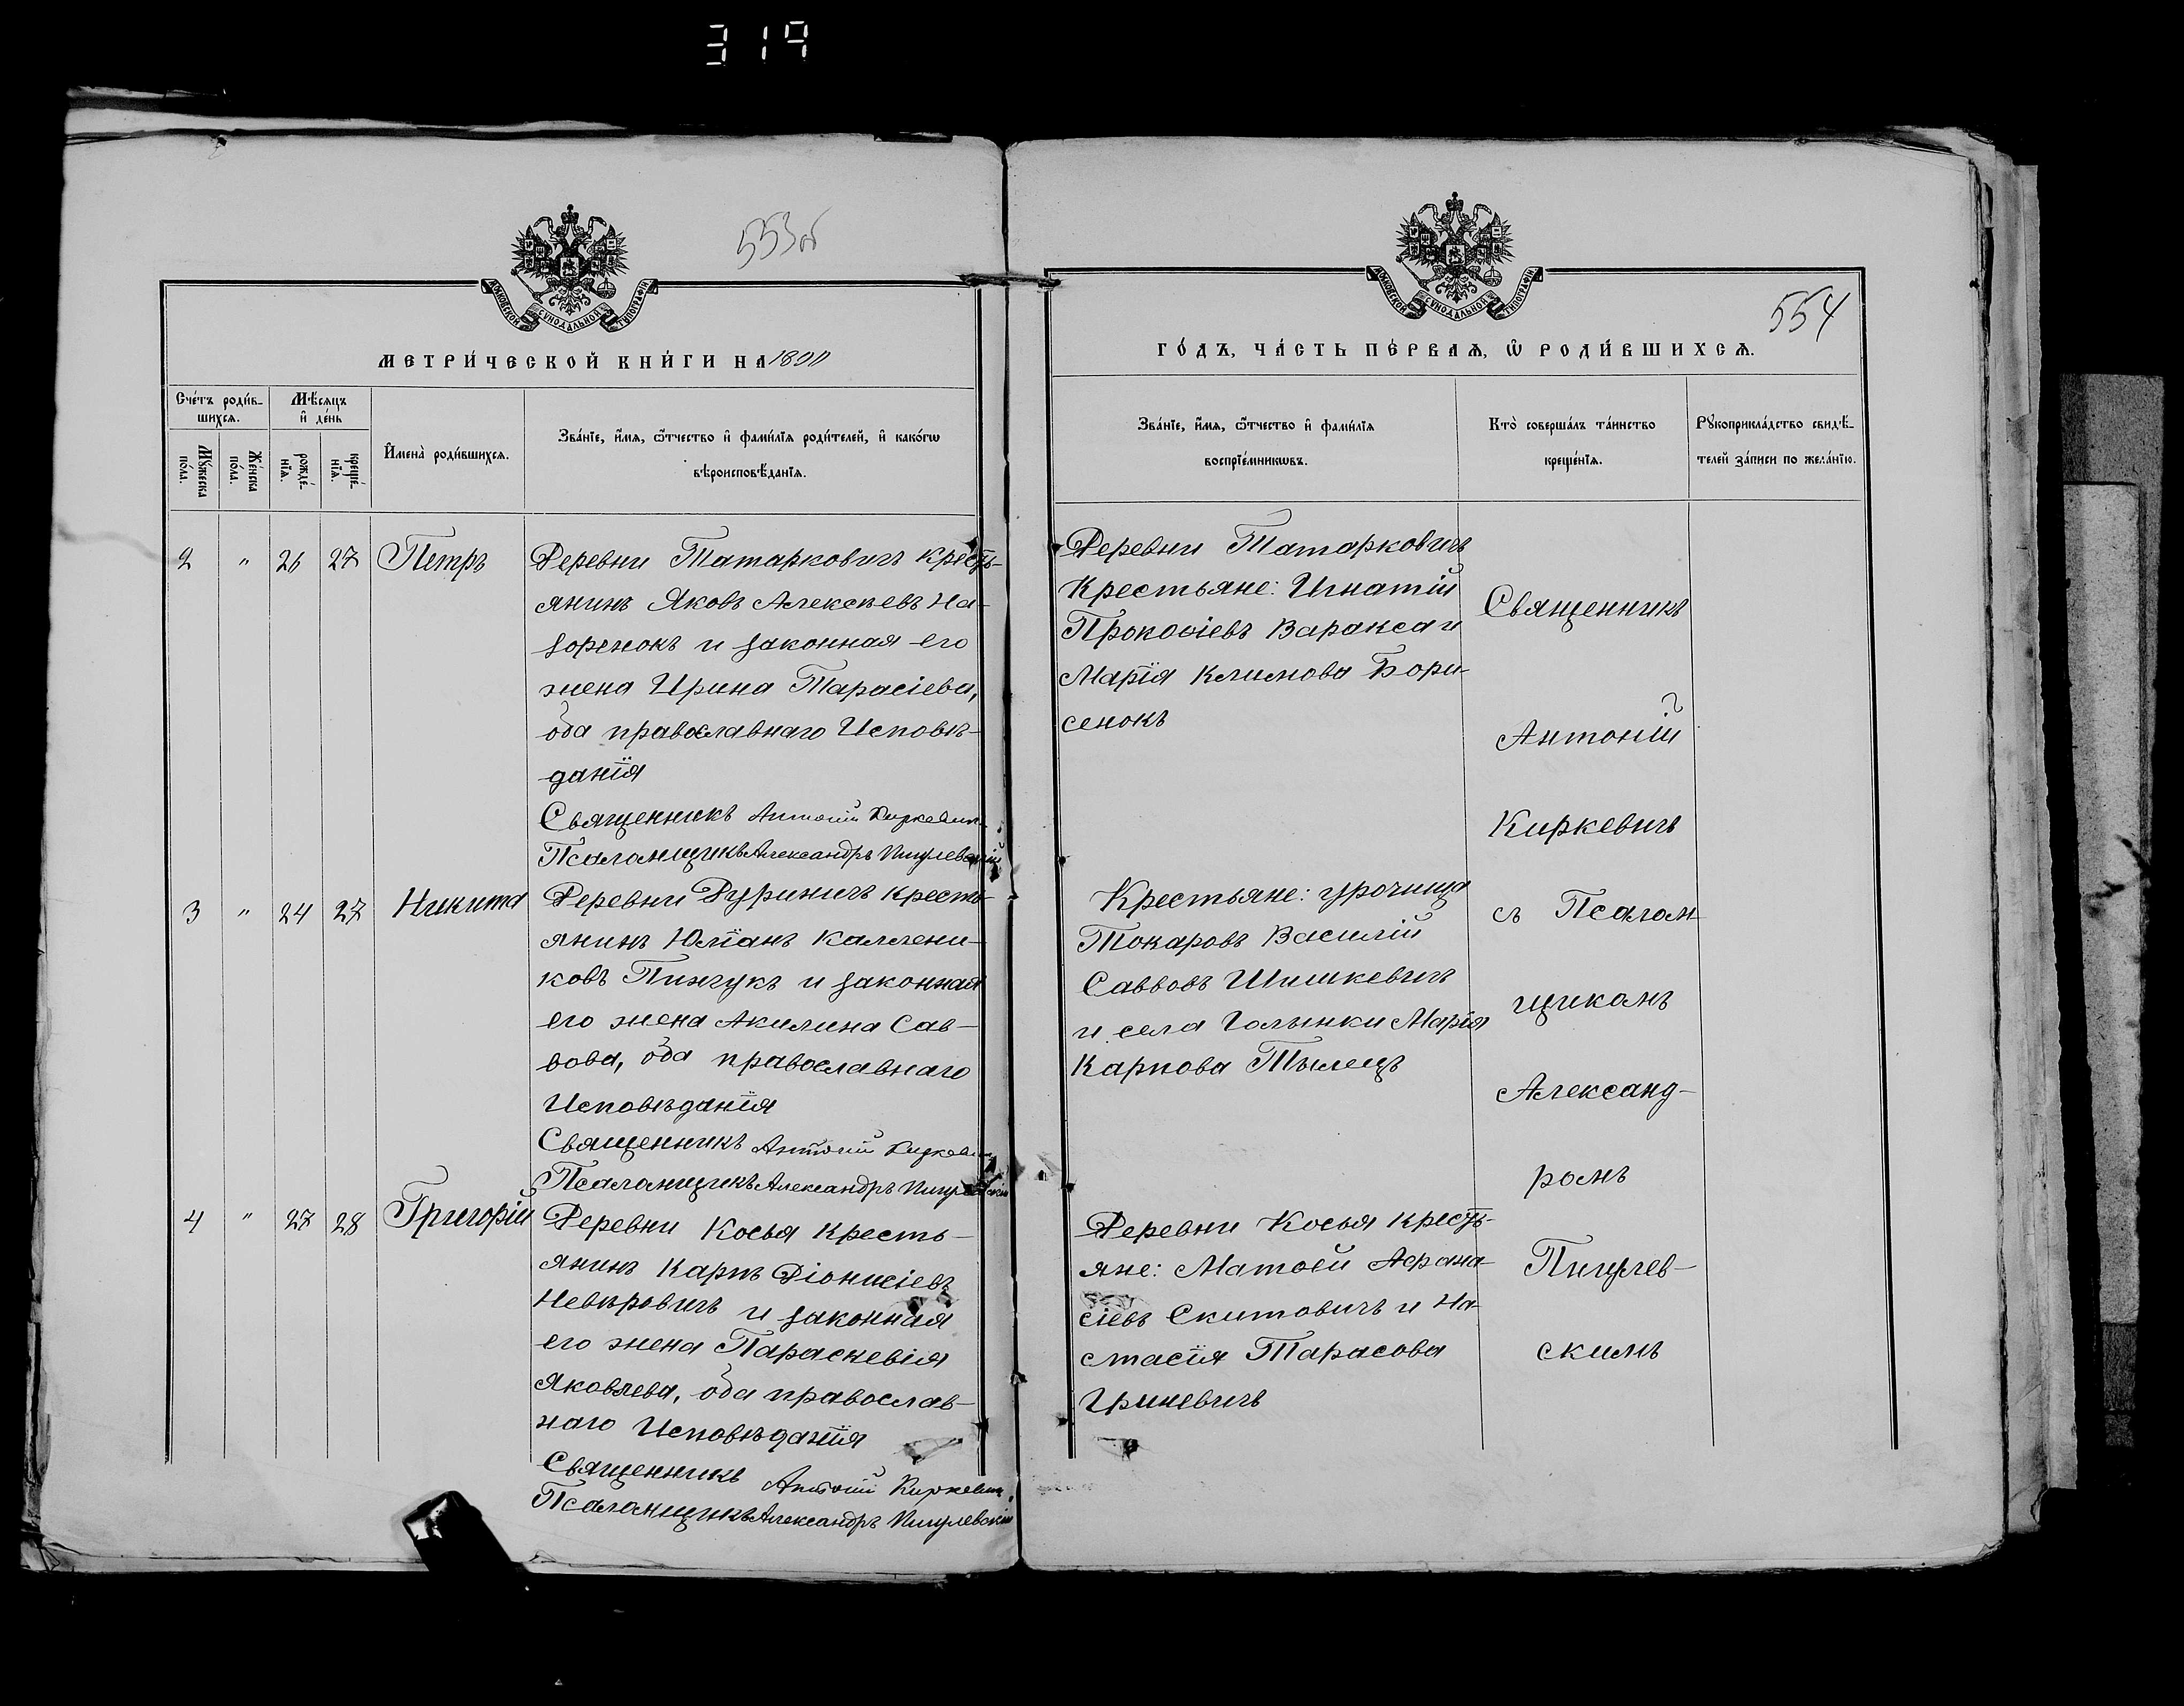 319
553об
МОСКОВСКОЙ СѴНОДАЛЬНОЙ ТѴПОГРАФІИ
МЕТРИ́ЧЕСКОЙ КНИ́ГИ НА
Сче́тъ роди́в-
шихсѧ.
Мѣ́сѧцъ
и҆ де́нь
Мꙋ́жеска по́ла.
Же́нска по́ла.
рожде́-нїѧ.
креще́-нїѧ.
И҆мена̀ роди́вшихсѧ.
Зва́нїе, и҆́мѧ, ѻ҆́тчество и҆ фами́лїѧ роди́телей, и҆ како́гѡ
вѣроисповѣ́данїѧ.
2 " 26 27 Петръ
Деревни Татарковичъ кресть-
янинъ Яковъ Алексѣевъ На-
зоренокъ и законная его
жена Ирина Тарасіева,
оба православнаго Исповѣ-
данія
Священникъ Антоній Киркевичъ
Псаломщикъ Александръ Пигулевскій
3 " 24 27 Никита
Деревни Дуриничъ кресть-
янинъ Юліанъ Каллени-
ковъ Пинчукъ и законная
его жена Акилина Сав-
вова, оба православнаго
Исповѣданія
Священникъ Антоній Киркевичъ
Псаломщикъ Александръ Пигулевскій
4 " 27 28 Григорій
Деревни Косья кресть-
янинъ Карпъ Діонисіевъ
Невѣровичъ и законная
его жена Параскевія
Яковлева, оба православ-
наго Исповѣданія
Священникъ Антоній Киркевичъ
Псаломщикъ Александръ Пигулевскій
554
МОСКОВСКОЙ СѴНОДАЛЬНОЙ ТѴПОГРАФІИ
ГО́ДЪ, ЧА́СТЬ ПЕ́РВАѦ, Ѡ҆ РОДИ́ВШИХСѦ.
Зва́нїе, и҆́мѧ, ѻ҆́тчество и҆ фами́лїѧ
воспрїе́мникѡвъ.
Кто̀ соверша́лъ та́инство
креще́нїѧ.
Рꙋкоприкла́дство свидѣ́-
телей за́писи по жела́нїю.
Деревни Татарковичъ
Крестьяне: Игнатій
Прокоѳіевъ Варакса и
Марія Климова Бори-
сенокъ
Крестьяне: урочища
Токаровъ Василій
Саввовъ Шишкевичъ
и села Голынки Марія
Карпова Тылецъ
Деревни Косья кресть-
яне: Матѳей Аѳана-
сіевъ Скитовичъ и На-
стасія Тарасова
Гриневичъ
Священникъ
Антоній
Киркевичъ
съ Псалом-
щикомъ
Александ-
ромъ
Пигулев-
скимъ